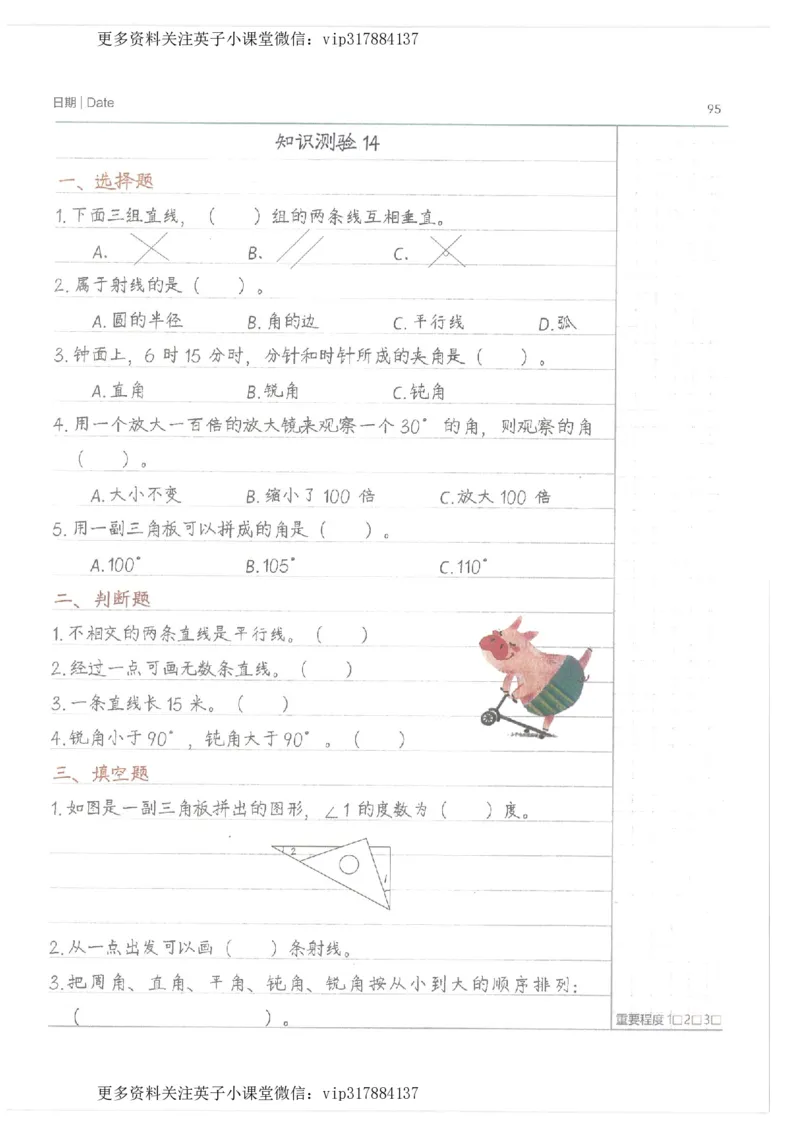 更多资料关注英子小课堂微信：vip317884137
日期 | Date
95
知识测验 14
一、选择题
1.下面三组直线，（　　）组的两条线互相垂直。
A.　B.　C.
2.属于射线的是（　　）。
A.圆的半径　B.角的边　C.平行线　D.弧
3.钟面上，6 时 15 分时，分针和时针所成的夹角是（　　）。
A.直角　B.锐角　C.钝角
4.用一个放大一百倍的放大镜来观察一个 30° 的角，则观察的角
（　　）。
A.大小不变　B.缩小了 100 倍　C.放大 100 倍
5.用一副三角板可以拼成的角是（　　）。
A.100°　B.105°　C.110°
二、判断题
1.不相交的两条直线是平行线。（　　）
2.经过一点可画无数条直线。（　　）
3.一条直线长 15 米。（　　）
4.锐角小于 90°，钝角大于 90°。（　　）
三、填空题
1.如图是一副三角板拼出的图形，∠1 的度数为（　　）度。
2
1
2.从一点出发可以画（　　）条射线。
3.把周角、直角、平角、钝角、锐角按从小到大的顺序排列：
（　　　　　　　　）。
重要程度 1□2□3□
更多资料关注英子小课堂微信：vip317884137